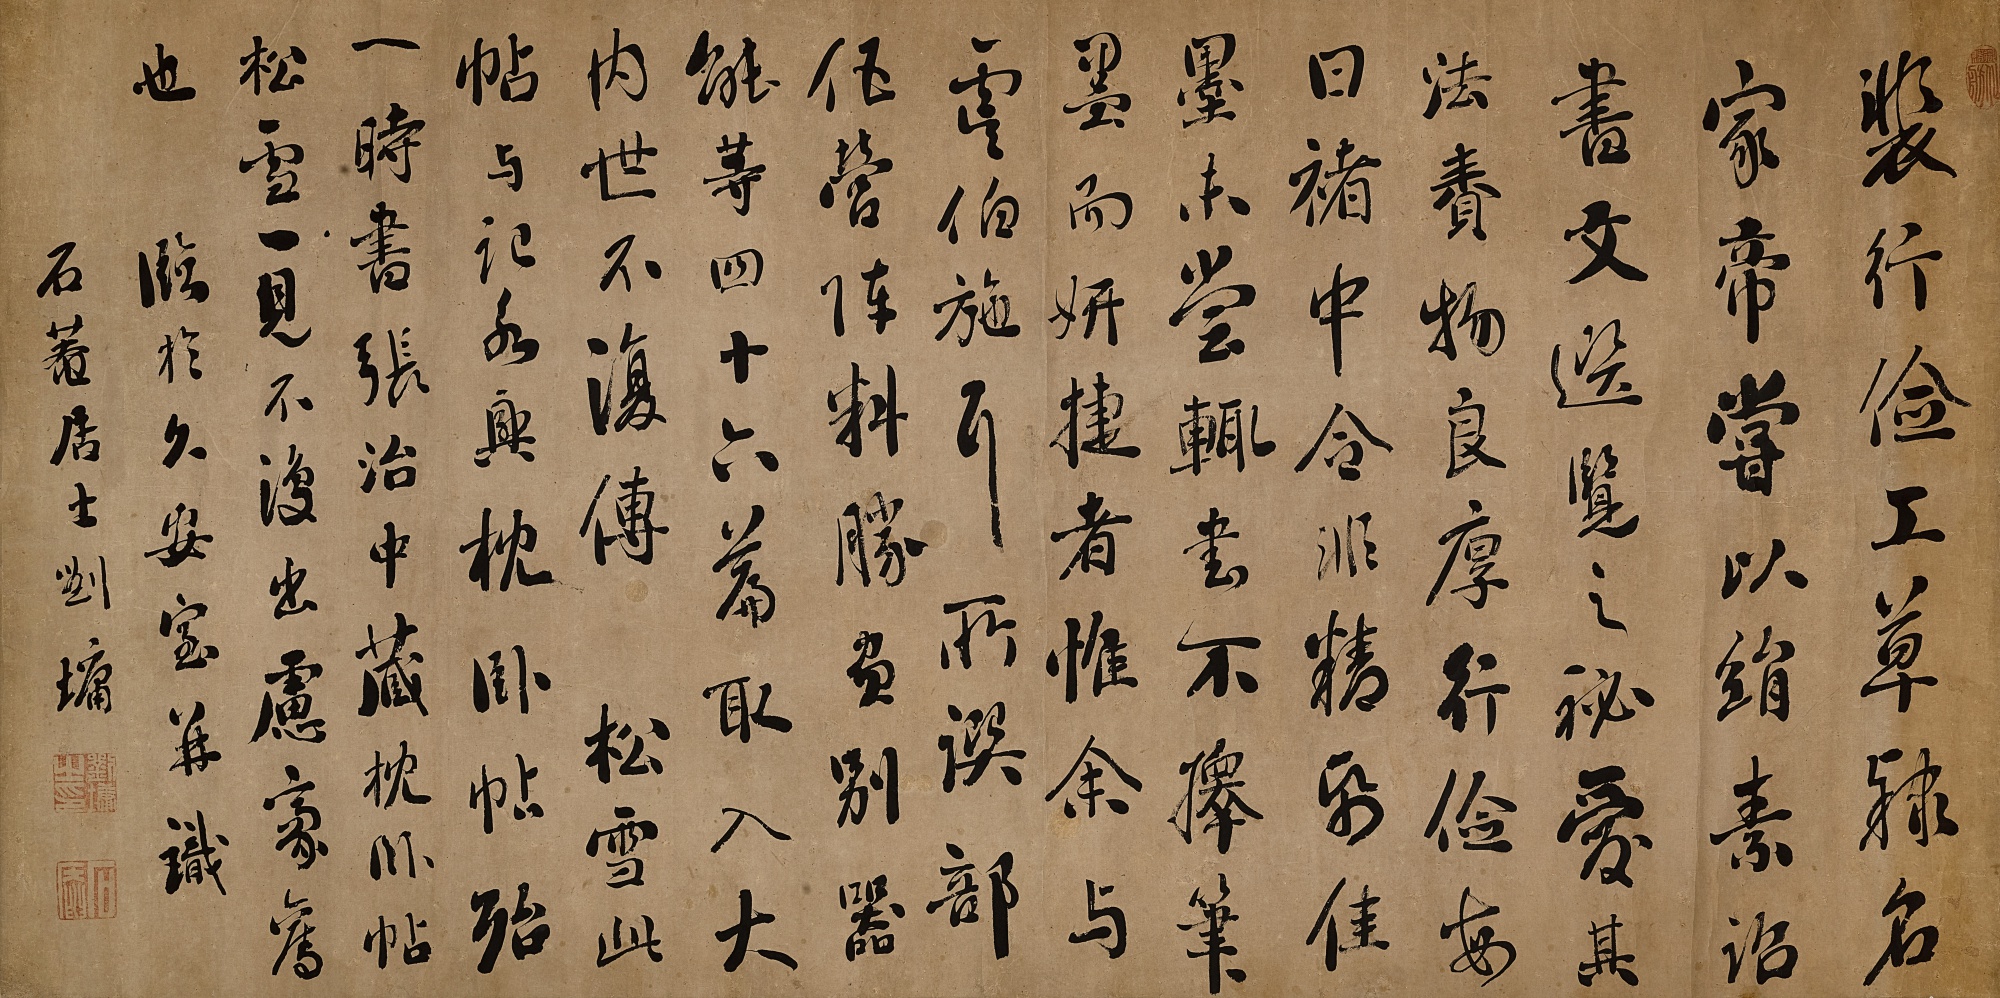 裴行儉工草隸名
家帝嘗以絹素詔
書文選覽之祕愛其
法賚物良厚行儉每
曰褚中令非精㢧佳
墨未嘗輒書不擇筆
墨而妍捷者惟余与
虞伯施耳所譔部
伍營陣料勝負別器
能等四十六篇取入大
内世不復傳 松雪此
帖与記永興枕卧帖殆
一時書張治中藏枕卧帖
松雪一見不復出慮豪奪
也 臨於久安室并識
石菴居士劉墉